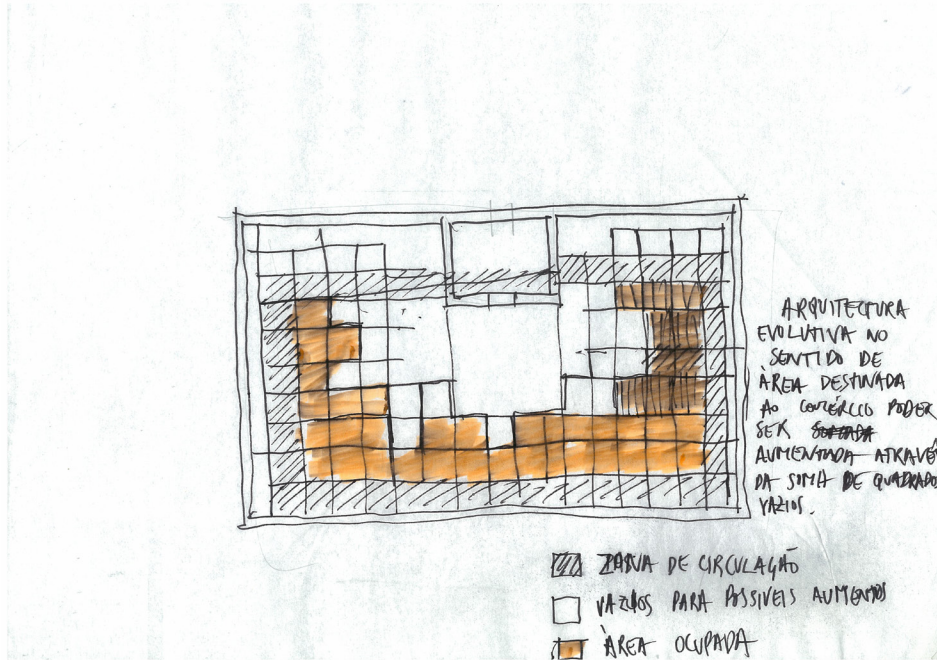 ARQUITECTURA
EVOLUTIVA NO
SENTIDO DE
ÀREA DESTINADA
AO COMÉRCIO PODER
SER
AUMENTADA ATRAVÉ
DA SOMA DE QUADRADO
VAZIOS.
DE CIRCULAÇÃO
VAZIOS PARA POSSIVEIS AUMENTOS
ÀREA OCUPADA